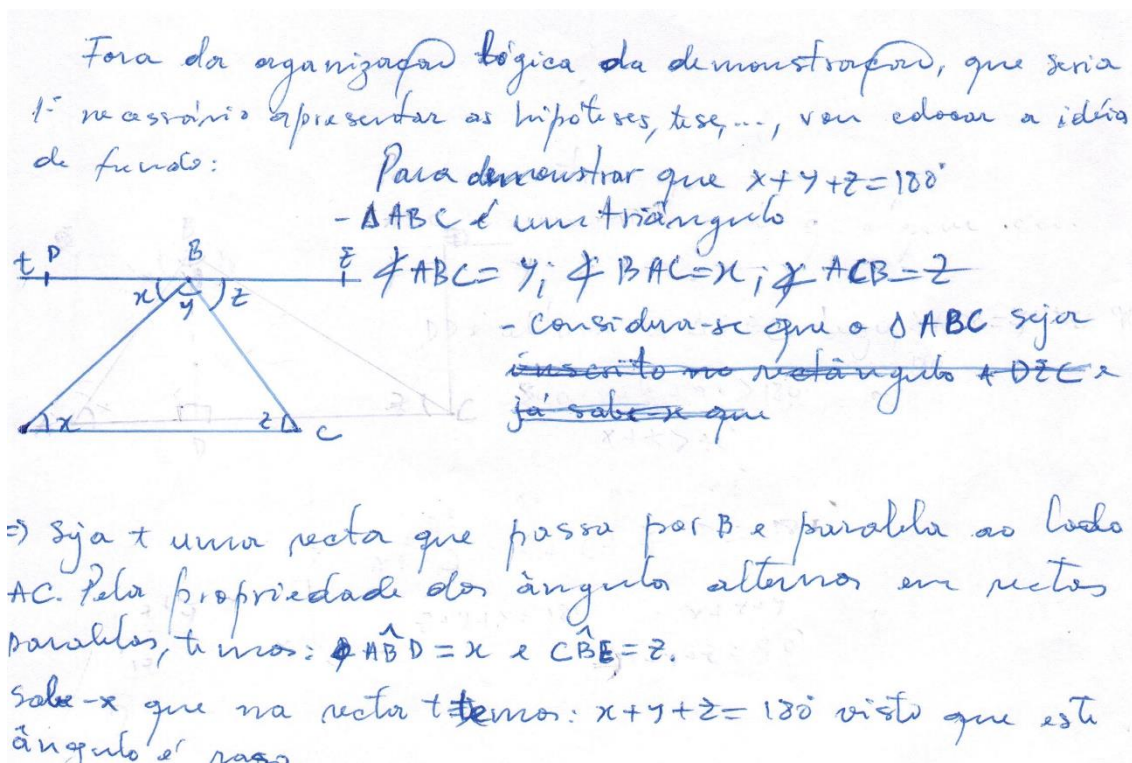 Fora da organização lógica da demonstração, que seria
1º necessário apresentar as hipóteses, tese, ..., vou colocar a idéia
de fundo:
Para demonstrar que x+y+z=180°
- ΔABC é um triângulo
t D B E
∢ABC= y; ∢BAC=x; ∢ACB=z
x y z
- Considera-se que o ΔABC seja
inscrito no rectângulo ADEC e
já sabe-se que
x z C
=) Seja t uma recta que passa por B e paralela ao lado
AC. Pela propriedade dos ângulo alternos em rectas
paralelas, temos: AB̂D = x e CB̂E = z.
Sabe-se que na recta t temos: x+y+z= 180° visto que este
ângulo é raso